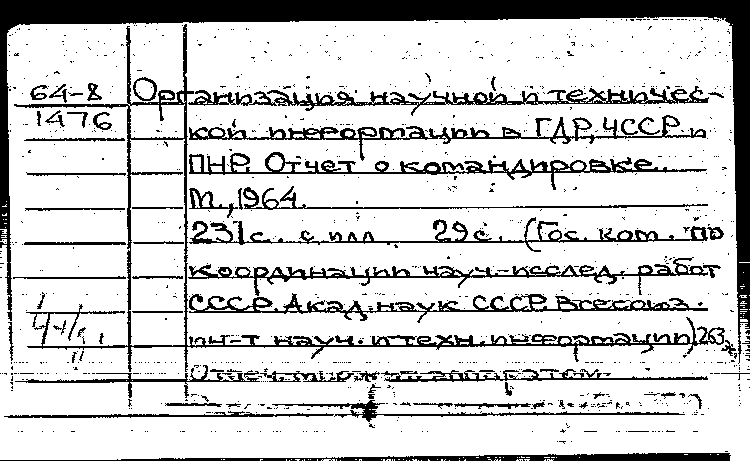 64-8
1476
Организация научной и техничес-
кой информации в ГДР, ЧССР и
ПНР. Отчет о командировке.
М., 1964.
231с. с илл. 29с. (Гос. ком. по
координации науч.-исслед. работ
СССР. Акад. наук СССР. Всесоюз.
ин-т науч. и техн. информации). 263
Отпеч. аппаратом.